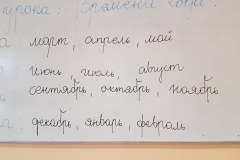 урока: Времена года.
март, апрель, май
июнь, июль, август
сентябрь, октябрь, ноябрь
декабрь, январь, февраль